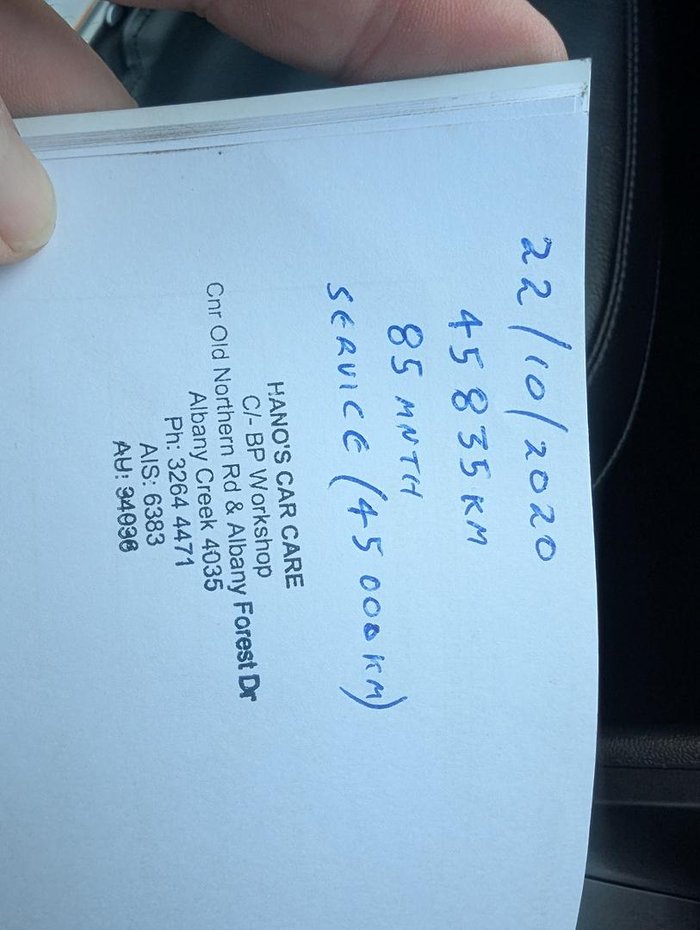 22/10/2020
45835KM
85 MNTH
SERVICE (45000KM)
HANO'S CAR CARE
C/- BP Workshop
Cnr Old Northern Rd & Albany Forest Dr
Albany Creek 4035
Ph: 3264 4471
AIS: 6383